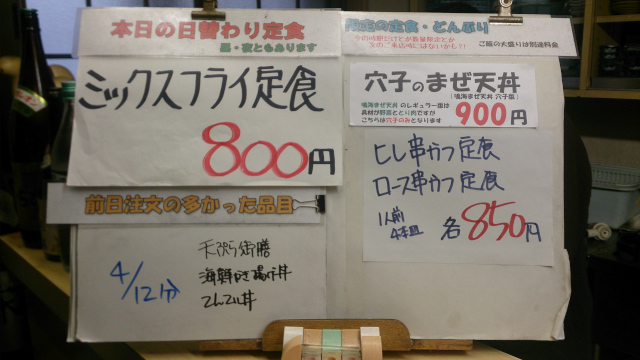 本日の日替わり定食
昼・夜ともあります
ミックスフライ定食
800円
前日注文の多かった品目
4/12分
天ぷら御膳
海鮮かき揚げ丼
てんてん丼
限定の定食・どんぶり
ご飯の大盛りは別途料金
穴子のまぜ天丼
(鳴海まぜ天丼 穴子版)
鳴海まぜ天丼 のレギュラー版は
具材が野菜ととり肉ですが
こちらは穴子のみとなります
900円
ヒレ串カツ定食
ロース串カツ定食
1人前
4本皿
各850円